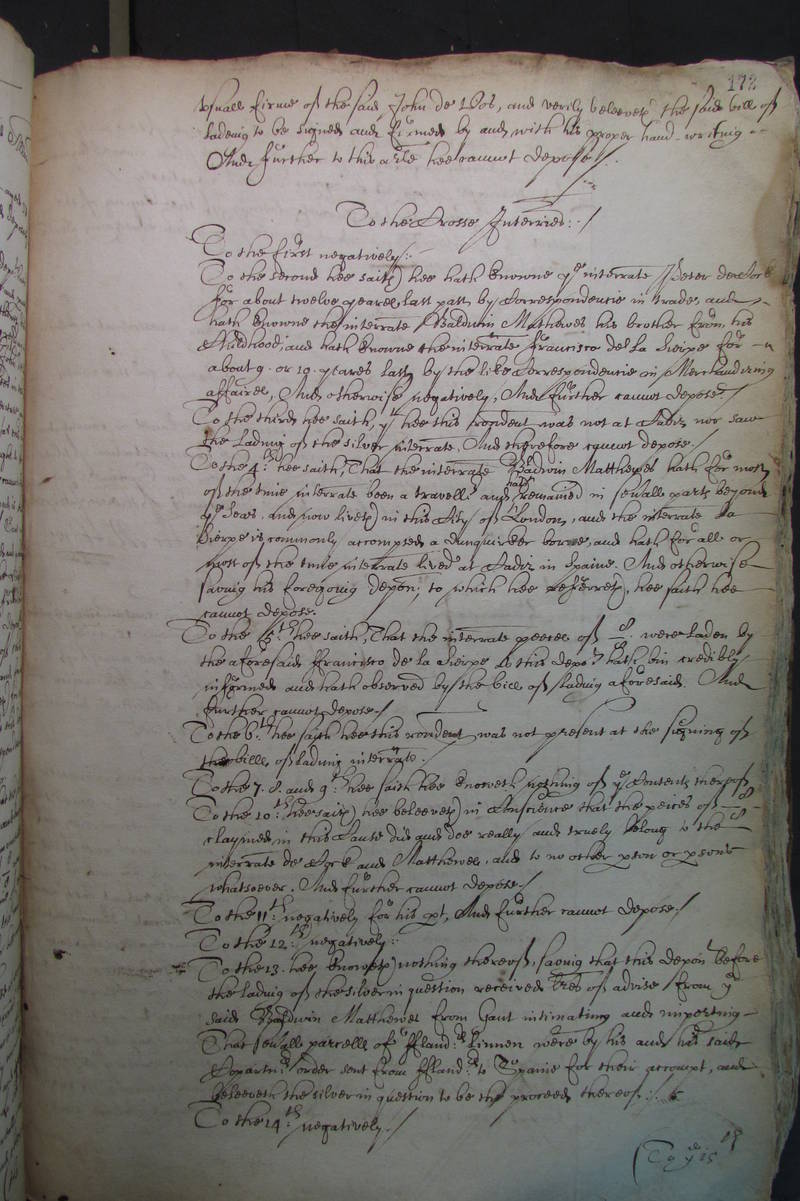 172
usuall firme of the said John de Wos, and verily beleeveth the said bill of
ladeing to be signed and firmed by and with his proper hand-writing
And further to this arle hee cannot depose /.
To the Crosse Interries: /
To the first negatively /:
To the second hee saith) hee hath knowne ye interrate Peter de
for about twelve yeares last past by Correspondencie in trade, and
hath knowne the interrate Baldwin Mathewes his brother from his
Childhood, and hath knowne the interrate Francisco de la
about 9. or 10. yeares last by the like Correspondencie in Merchandizing
affaires, And otherwise negatively, And further cannot depose /
To the third hee saith, yt hee this rondent was not at Cadiz nor saw
the ladeing of the silver interrate, And therefore cannot depose. /
To the 4th. hee saith, That the interrate Baldwin Matthewes hath for most
of the time interrate been a traveller and hath remained in sevall parts beyond
ye Seas and now liveth) in this City of London, and the interrate La
is commonly accompted a Dunquirker borne, and hath for all or
most of the time interrate lived at Cadiz in Spaine. And otherwise
saving his foregoing depon, to which hee referreth, hee saith hee
cannot depose.
To the 5th hee saith, That the interrate peeces of 8. were laden by
the aforesaid Francisco de la as this depot hath bin credibly
informed and hath observed by the bill of lading aforesaid. And
further cannot depose /
To the 6.th hee saith hee this rondent was not present at the signing of
the bills of lading interrate. /
To the 7. 8. and 9th. hee saith hee knoweth nothing of ye Contents thereof
To the 10.th hee saith) hee beleeveth) in Conscience that the peices of 8
claymed in this Cause did and doe really and truely belong to the
interrate de and Matthewes, and to no other pson or psons
whatsoever. And further cannot depose. /
To the 11th. negatively for his pt, And further cannot depose. /
To the 12.th negatively:
To the 13. hee knoweth) nothing thereof, saving that this depont before
the lading of the silver in question received tres of advise from ye
said Baldwin Matthewes from Gant intimating and importing
That sevall parcells of ffland:rs Linnen were by his and his said
Copartnrs order sent from ffland:rs to Spaine for their accompt, and
beleeveth the silver in question to be the proceed thereof:
To the 14.th negatively. /
To ye 15th